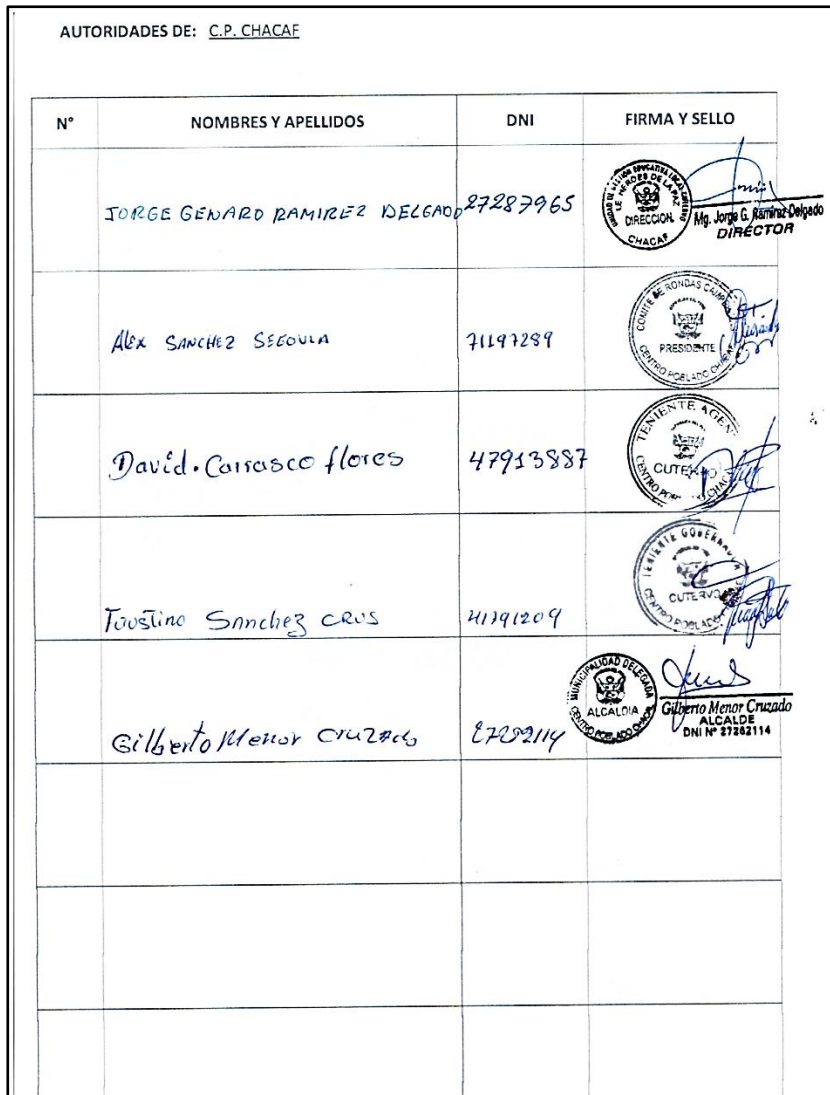 AUTORIDADES DE: C.P. CHACAF
N° NOMBRES Y APELLIDOS DNI FIRMA Y SELLO
JORGE GENARO RAMIREZ DELGADO 27287965
UNIDAD DE GESTION EDUCATIVA LOCAL CUTERVO
I.E. HEROES DE LA PAZ
DIRECCION
CHACAF
Mg. Jorge G. Ramírez Delgado
DIRECTOR
Alex SANCHEZ SEGOVIA 71197289
COMITE DE RONDAS
PRESIDENTE
CENTRO POBLADO CHACAF
David. Carrasco flores 47913887
TENIENTE AGEN
CUTERVO
CENTRO POB CHACAF
Faustino Sanchez CRUS 41191209
TENIENTE GOBERNADOR
CUTERVO
CENTRO POBLADO
Gilberto Menor Cruzado 27292114
MUNICIPALIDAD DELEGADA
ALCALDIA
CENTRO POBLADO CHACAF
Gilberto Menor Cruzado
ALCALDE
DNI N° 27262114